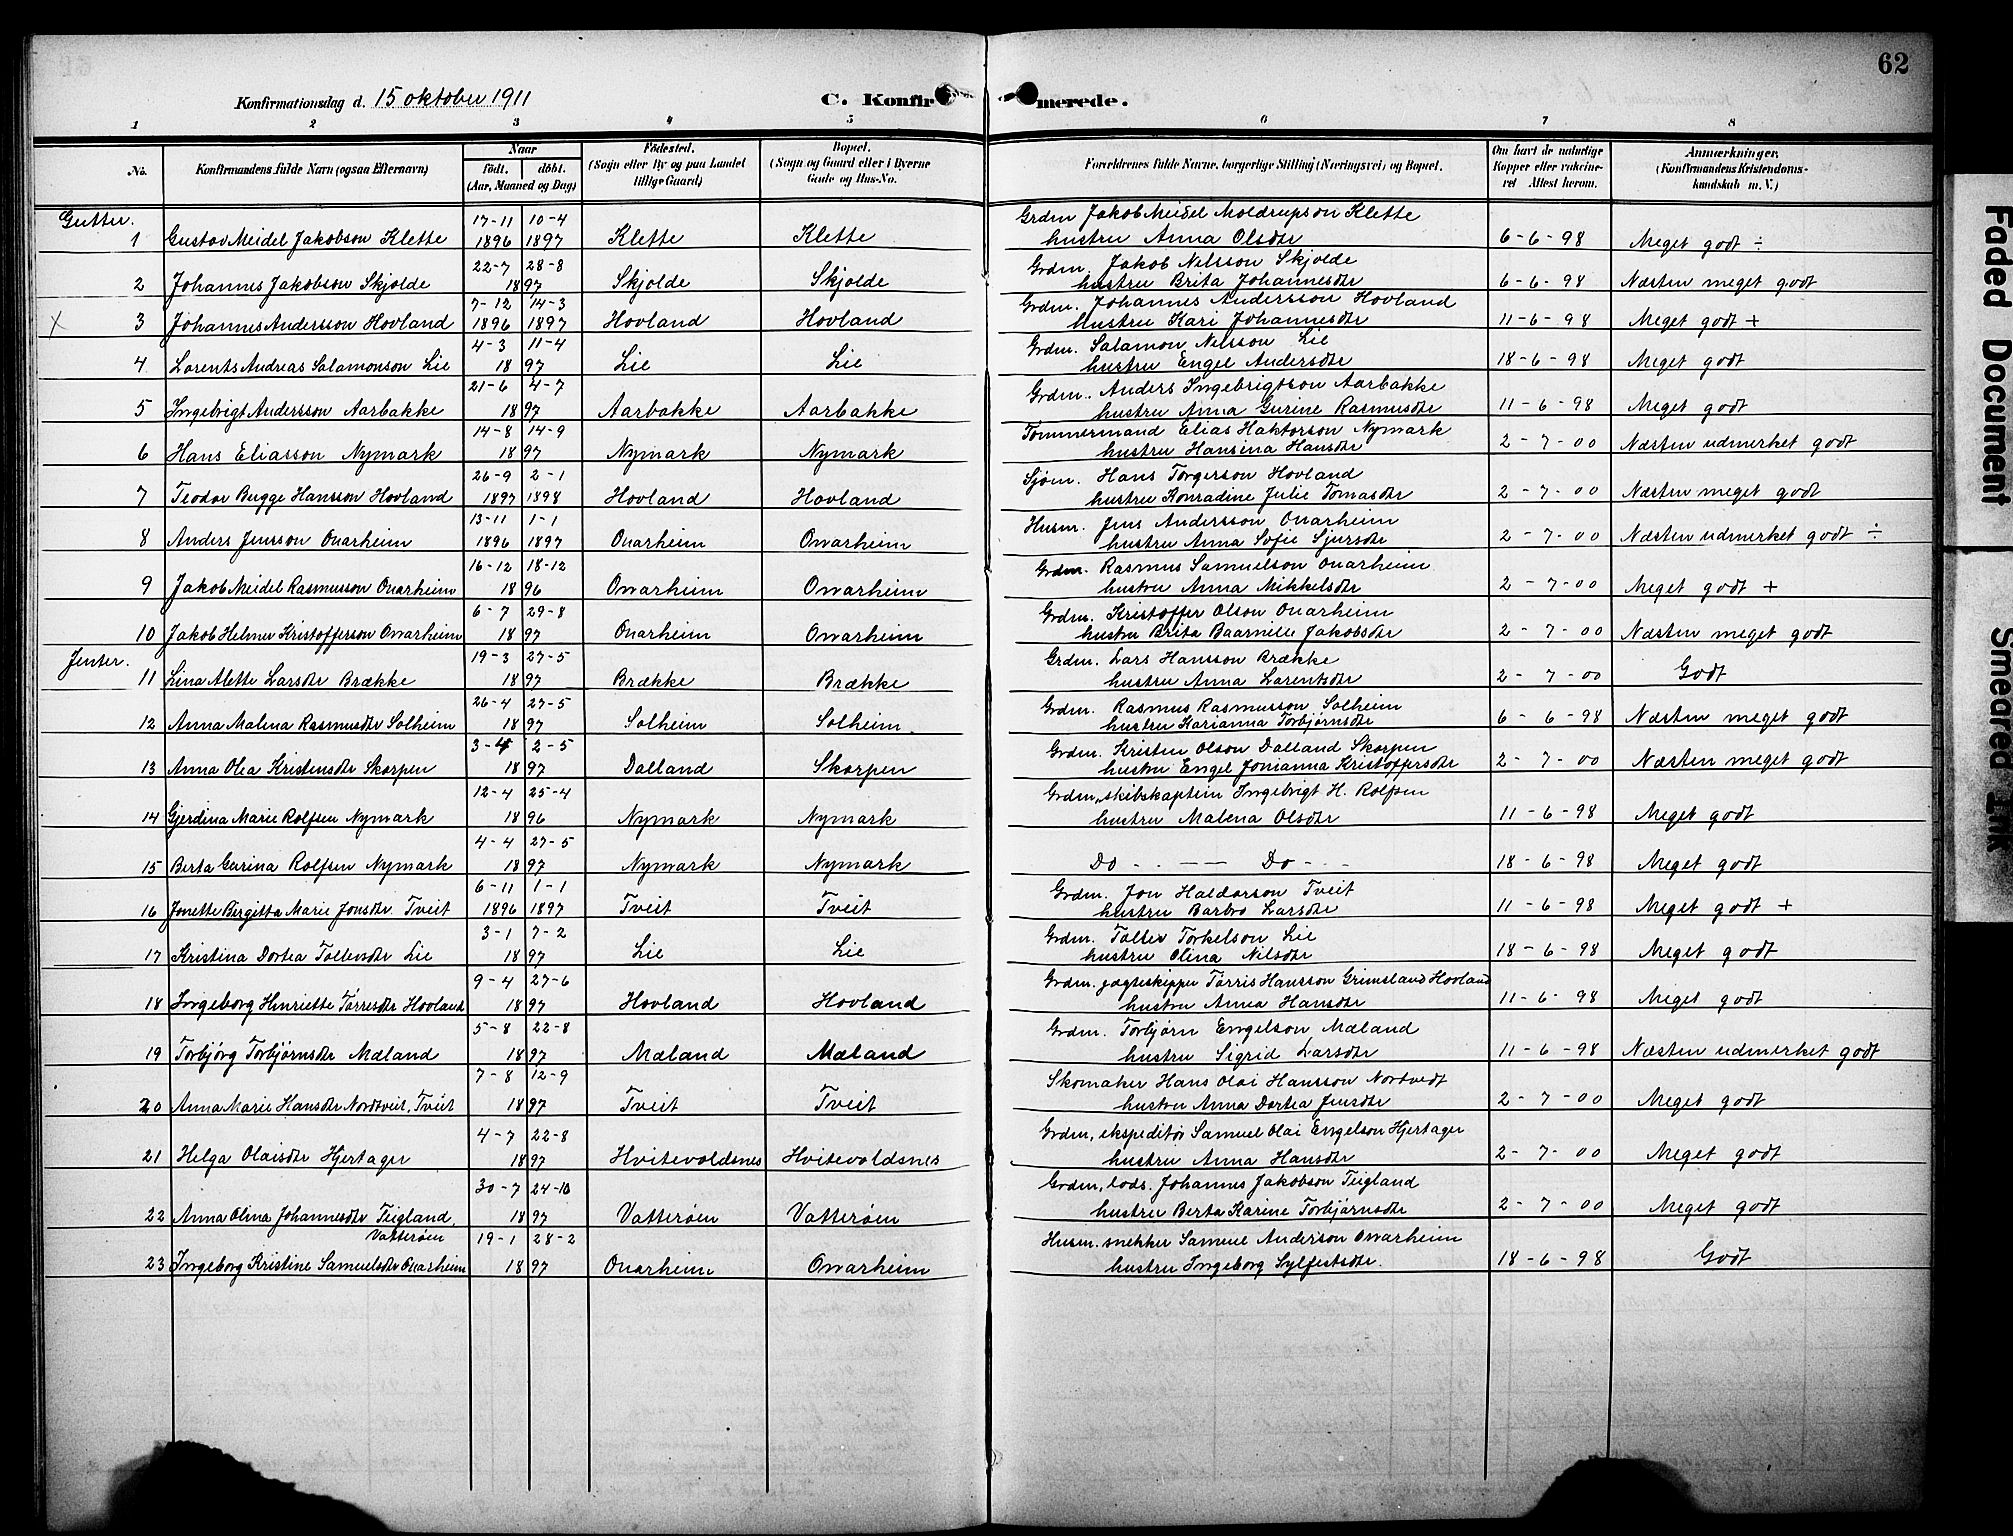 62
Konfirmationsdag d. 15 oktober 1911
C. Konfirmerede.
1 2 3 4 5 6 7 8
No. Konfirmandens fulde Navn (ogsaa Efternavn) Naar födt. döbt. (Aar, Maaned og Dag) Födested. (Sogn eller By og paa Landet tillige Gaard) Bopæl. (Sogn og Gaard eller i Byerne Gade og Hus-No. Forældrenes fulde Navne, borgerlige Stilling (Næringsvei) og Bopæl. Om havt de naturlige Kopper eller vakcineret. Attest herom. Anmærkninger. (Konfirmandens Kristendomskundskab m. V.)
Gutter.
17-11 10-4 Grdm Jakob Meidel Moldrupson Klette
1 Gustav Meidel Jakobson Klette 1896 1897 Klette Klette hustru Anna Olsdtr 6-6-98 Meget godt ÷
22-7 28-8 Grdm. Jakob Nelsson Skjolde
2 Johannes Jakobson Skjolde 1897 Skjolde Skjolde hustru Brita Johannesdtr 6-6-98 Næsten meget godt
7-12 14-3 Grdm. Johannes Andersson Hovland
X 3 Johannes Andersson Hovland 1896 1897 Hovland Hovland hustru Kari Johannesdtr 11-6-98 Meget godt +
4-3 11-4 Grdm. Salamon Nelsson Lie
4 Lorents Andreas Salamonson Lie 1897 Lie Lie hustru Engel Andersdtr 18-6-98 Meget godt
21-6 4-7 Grdm. Anders Ingebrigtson Aarbakke
5 Ingebrigt Andersson Aarbakke 1897 Aarbakke Aarbakke hustru Anna Gurine Rasmusdtr 11-6-98 Meget godt
14-8 14-9 Tømmermand Elias Haktorson Nymark
6 Hans Eliasson Nymark 1897 Nymark Nymark hustru Hansina Hansdtr 2-7-00 Næsten udmerket godt
26-9 2-1 Sjøm. Hans Torgersson Hovland
7 Teodor Bugge Hansson Hovland 1897 1898 Hovland Hovland hustru Konradine Julie Tomasdtr 2-7-00 Næsten meget godt
13-11 1-1 Husm. Jens Andersson Onarheim
8 Anders Jensson Onarheim 1896 1897 Onarheim Onarheim hustru Anna Sofie Sjursdtr 2-7-00 Næsten udmerket godt ÷
16-12 18-12 Grdm. Rasmus Samuelson Onarheim
9 Jakob Meidel Rasmusson Onarheim 1896 Onarheim Onarheim hustru Anna Mikkelsdtr 2-7-00 Meget godt +
6-7 29-8 Grdm. Kristoffer Olson Onarheim
10 Jakob Helmer Kristofferson Onarheim 1897 Onarheim Onarheim hustru Brita Baarnille Jakobsdtr 2-7-00 Næsten meget godt
Jenter.
19-3 27-5 Grdm. Lars Hansson Brække
11 Lina Alette Larsdtr Brække 1897 Brække Brække hustru Anna Larentsdtr 2-7-00 Godt
26-4 27-5 Grdm. Rasmus Rasmusson Solheim
12 Anna Malena Rasmusdtr Solheim 1897 Solheim Solheim hustru Karianna Torbjørnsdtr 6-6-98 Næsten meget godt
3-4 2-5 Grdm. Kristen Olson Dalland Skorpen
13 Anna Olea Kristensdtr Skorpen 1897 Dalland Skorpen hustru Engel Jonianna Kristoffersdtr 2-7-00 Næsten meget godt
12-4 25-4 Grdm, skibskaptein Ingebrigt H. Rolfsen
14 Gjerdina Marie Rolfsen Nymark 1896 Nymark Nymark hustru Malena Olsdtr 11-6-98 Meget godt
4-4 27-5
15 Berta Garina Rolfsen Nymark 1897 Nymark Nymark Do - - — — Do - - - 18-6-98 Meget godt
6-11 1-1 Grdm. Jon Haldorson Tveit
16 Jonette Birgitta Marie Jonsdtr Tveit 1896 1897 Tveit Tveit hustru Barbro Larsdtr 11-6-98 Meget godt +
3-1 7-2 Grdm. Tollev Torkelson Lie
17 Kristina Dortea Tollevsdtr Lie 1897 Lie Lie hustru Olina Nilsdtr 18-6-98 Meget godt
9-4 27-6 Grdm. jagteskipper Tørris Hansson Grimsland Hovland
18 Ingeborg Henriette Tørresdtr Hovland 1897 Hovland Hovland hustru Anna Hansdtr 11-6-98 Meget godt
5-8 22-8 Grdm. Torbjørn Engelson Mæland
19 Torbjørg Torbjørnsdtr Mæland 1897 Mæland Mæland hustru Sigrid Larsdtr 11-6-98 Næsten udmerket godt
7-8 12-9 Skomaker Hans Olai Hansson Nortvedt
20 Anna Marie Hansdtr Nordtveit, Tveit 1897 Tveit Tveit hustru Anna Dortea Jensdtr 2-7-00 Meget godt
4-7 22-8 Grdm, ekspeditør Samuel Olai Engelson Hjertager
21 Helga Olaisdtr Hjertager 1897 Hvitevoldsnes Hvitevoldsnes hustru Anna Hansdtr 2-7-00 Meget godt
30-7 24-10 Grdm, lods. Johannes Jakobson Teigland
22 Anna Olina Johannesdtr Teigland, 1897 Vatterøen Vatterøen hustru Berta Karine Torbjørnsdtr 2-7-00 Meget godt
Vatterøen 19-1 28-2 Husm. snekker Samuel Anderson Onarheim
23 Ingeborg Kristine Samuelsdtr Onarheim 1897 Onarheim Onarheim hustru Ingeborg Sylfestsdtr. 18-6-98 Godt
Faded Document
Smeared Ink